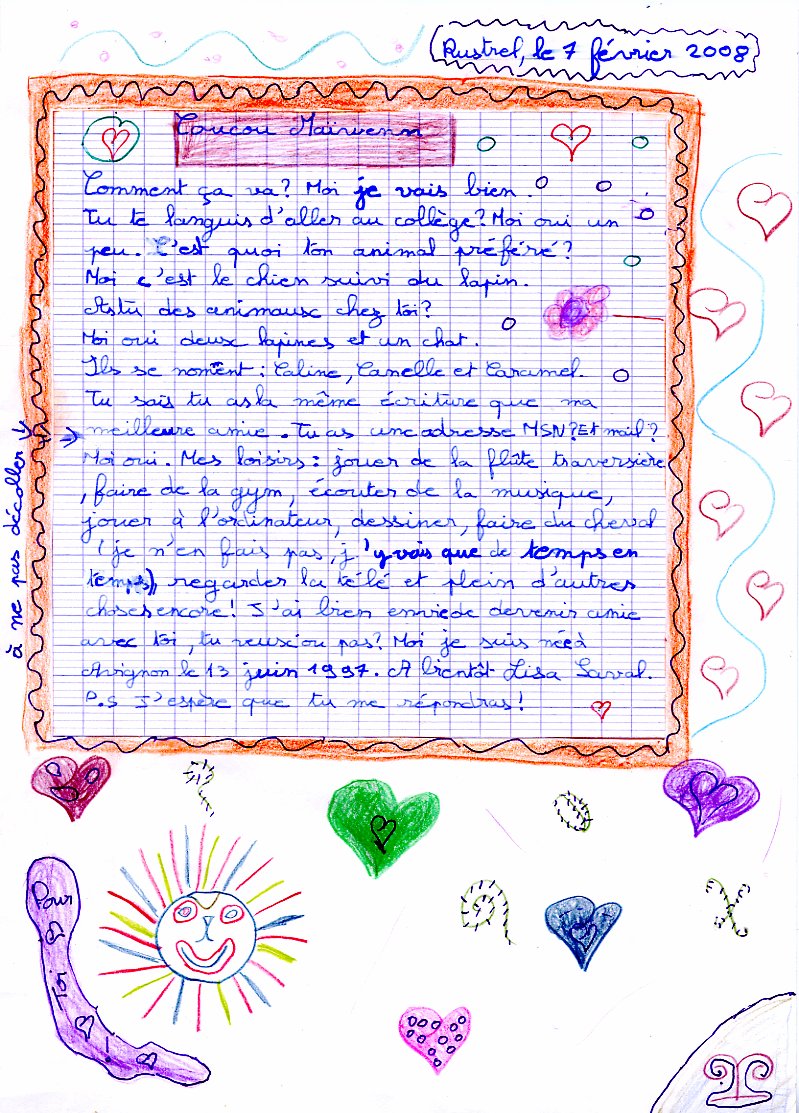 Rustrel, le 7 février 2008
Coucou Maïwenn
Comment ça va? Moi je vais bien.
Tu te languis d'aller au collège? Moi oui un
peu. C'est quoi ton animal préféré?
Moi c'est le chien suivi du lapin.
As tu des animaux chez toi?
Moi oui deux lapines et un chat.
Ils se noment : Caline, Canelle et Caramel.
Tu sais tu as la même écriture que ma
meilleure amie. Tu as une adresse MSN? Et mail?
Moi oui. Mes loisirs : jouer de la flûte traversière
, faire de la gym, écouter de la musique,
jouer à l'ordinateur, dessiner, faire du cheval
( je n'en fais pas, j'y vais que de temps en
temps), regarder la télé et plein d'autres
choses encore! J'ai bien envie de devenir amie
avec toi, tu veux ou pas? Moi je suis née à
Avignon le 13 juin 1997. A bientôt Lisa Laval.
P.S J'espère que tu me répondras!
à ne pas décoller
Pour
Toi !